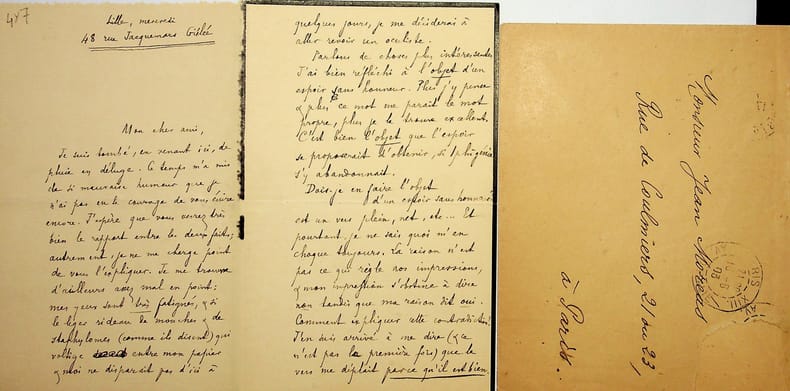 487
Lille, mercredi
48 rue Jacquemars Giélée
Mon cher ami,
Je suis tombé, en venant ici, de
pluie en déluge. Ce temps m'a mis
de si mauvaise humeur que je
n'ai pas eu le courage de vous écrire
encore. J'espère que vous verrez très
bien le rapport entre les deux faits;
autrement, je ne me charge point
de vous l'expliquer. Je me trouve
d'ailleurs assez mal en point:
mes yeux sont très fatigués, & si
le léger rideau de mouches & de
staphylomes (comme ils disent) qui
voltige entre mon papier
& moi ne disparaît pas d'ici à
quelques jours, je me déciderai à
aller revoir un oculiste.
Parlons de choses plus intéressantes
J'ai bien réfléchi à l'objet d'un
espoir sans honneur. Plus j'y pense
& plus ce mot me paraît le mot
propre, plus je le trouve excellent.
C'est bien l'objet que l'espoir
se proposerait d'obtenir, si Iphigénie
s'y abandonnait.
Dois-je en faire l'objet
d'un espoir sans honneur
est un vers plein, net, etc... Et
pourtant, je ne sais quoi m'en
choque toujours. La raison n'est
pas ce qui règle nos impressions,
& mon impression s'obstine à dire
non tandis que ma raison dit oui.
Comment expliquer cette contradiction?
J'en suis arrivé à me dire (& ce
n'est pas la première fois) que le
vers me déplaît parce qu'il est bien
Monsieur Jean Moréas
Rue de Coulmiers, 21 ou 23,
à Paris.